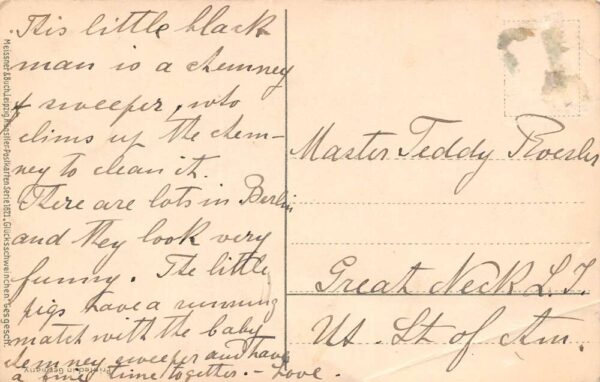 This little black
man is a chemney
sweeper, who
clims up the chem-
ney to clean it.
There are lots in Berlin
and they look very
funny. The little
pigs have a running
match with the baby
chemney sweeper and have
a fine time together. - Love.
Master Teddy Roesler
Great Neck L.I.
Ut. St of Am.
Meissner & Buch, Leipzig. Künstler-Postkarten Serie 1821 „Glücksschweinchen" Ges. gesch.
Printed in Germany